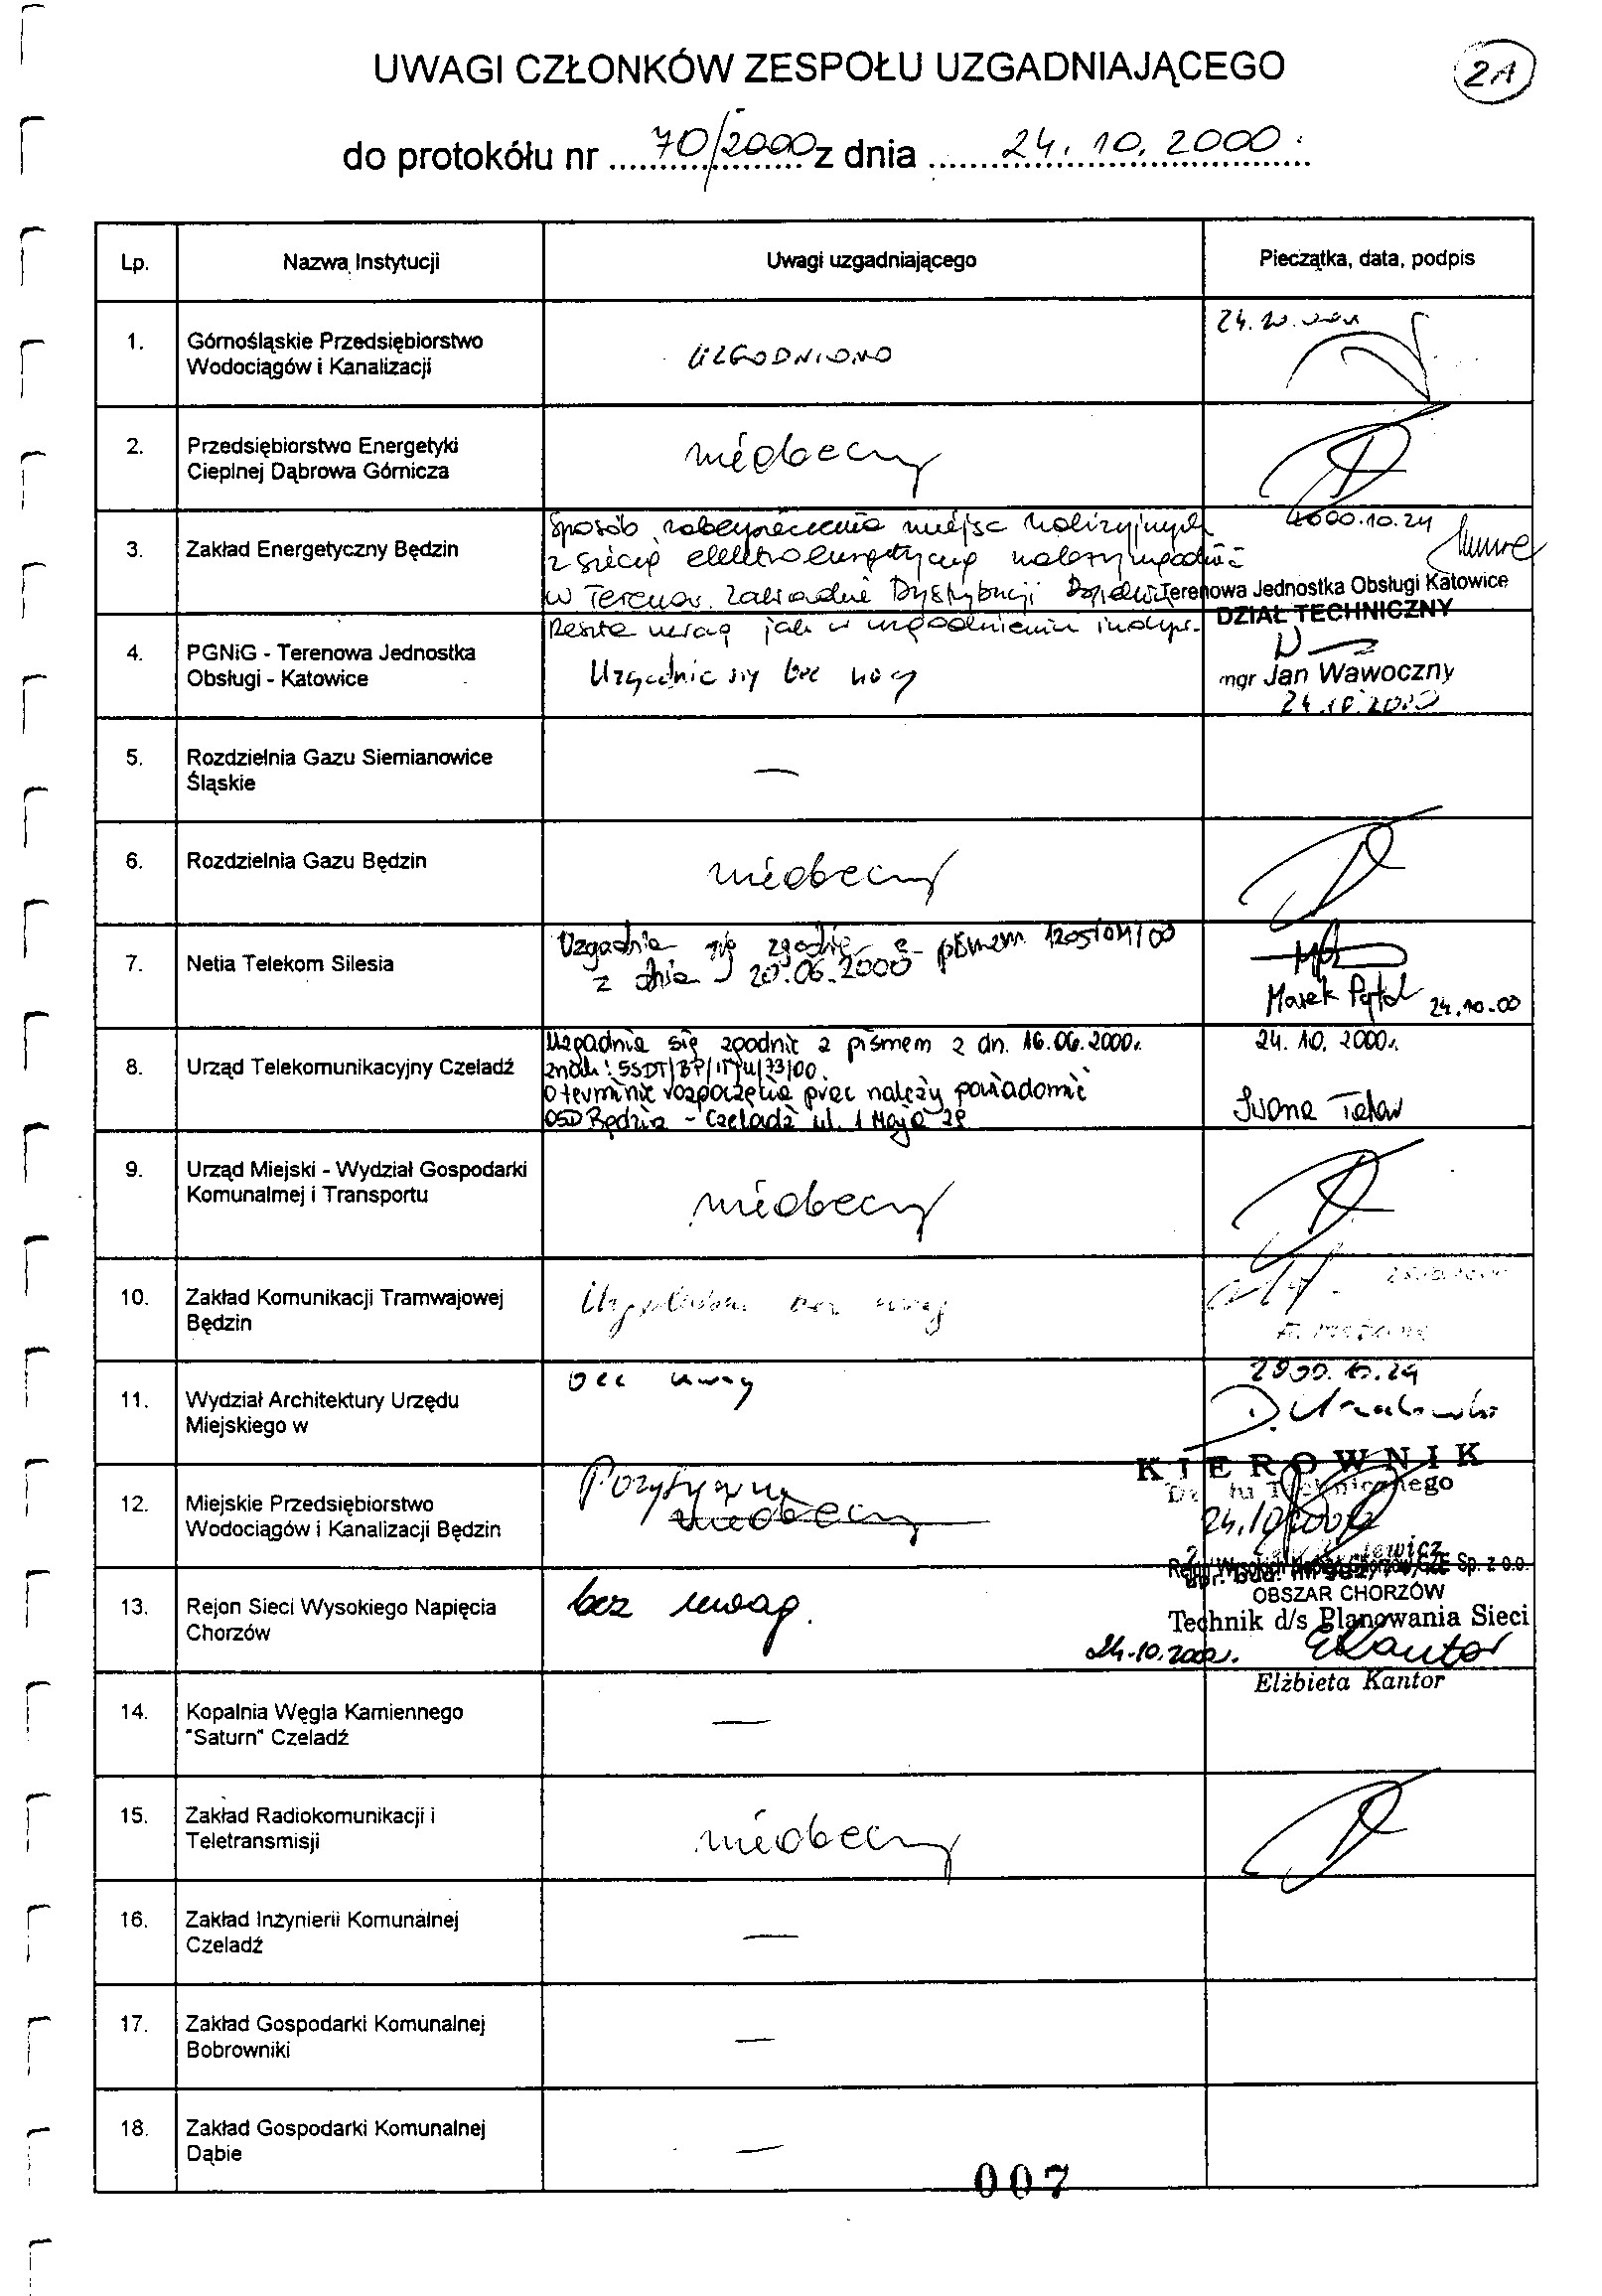 UWAGI CZŁONKÓW ZESPOŁU UZGADNIAJĄCEGO
2A
do protokółu nr 70/2000 z dnia 24.10.2000
Lp. Nazwa Instytucji Uwagi uzgadniającego Pieczątka, data, podpis
1. Górnośląskie Przedsiębiorstwo
Wodociągów i Kanalizacji
UZGODNIONO
2. Przedsiębiorstwo Energetyki
Cieplnej Dąbrowa Górnicza
nieobecny
3. Zakład Energetyczny Będzin
Sposób zabezpieczenia miejsc kolizyjnych
z siecią elektroenergetyczną należy uzgodnić
w Terenow. Zakładzie Dystrybucji
Reszta uwag jak w uzgodnieniu
2000.10.24
4. PGNiG - Terenowa Jednostka
Obsługi - Katowice
Uzgadnia się bez uwag
Terenowa Jednostka Obsługi Katowice
DZIAŁ TECHNICZNY
mgr Jan Wawoczny
24.10.2000
5. Rozdzielnia Gazu Siemianowice
Śląskie
—
6. Rozdzielnia Gazu Będzin
nieobecny
7. Netia Telekom Silesia
Uzgadnia się zgodnie z pismem
z dnia 20.06.2000
Marek
24.10.00
8. Urząd Telekomunikacyjny Czeladź
Uzgadnia się zgodnie z pismem z dn. 16.06.2000r.
znak:
O terminie rozpoczęcia prac należy powiadomić
OSD Będzin - Czeladź ul. 1 Maja
24.10.2000r.
Iwona
9. Urząd Miejski - Wydział Gospodarki
Komunalmej i Transportu
nieobecny
10. Zakład Komunikacji Tramwajowej
Będzin
bez uwag
11. Wydział Architektury Urzędu
Miejskiego w
bez uwag
2000.10.24
12. Miejskie Przedsiębiorstwo
Wodociągów i Kanalizacji Będzin
Pozytywna
nieobecny
KIEROWNIK
Działu Technicznego
13. Rejon Sieci Wysokiego Napięcia
Chorzów
bez uwag.
OBSZAR CHORZÓW
Technik d/s Planowania Sieci
24.10.2000r. EKantor
Elżbieta Kantor
14. Kopalnia Węgla Kamiennego
"Saturn" Czeladź
—
15. Zakład Radiokomunikacji i
Teletransmisji
nieobecny
16. Zakład Inżynierii Komunalnej
Czeladź
—
17. Zakład Gospodarki Komunalnej
Bobrowniki
—
18. Zakład Gospodarki Komunalnej
Dąbie
—
007